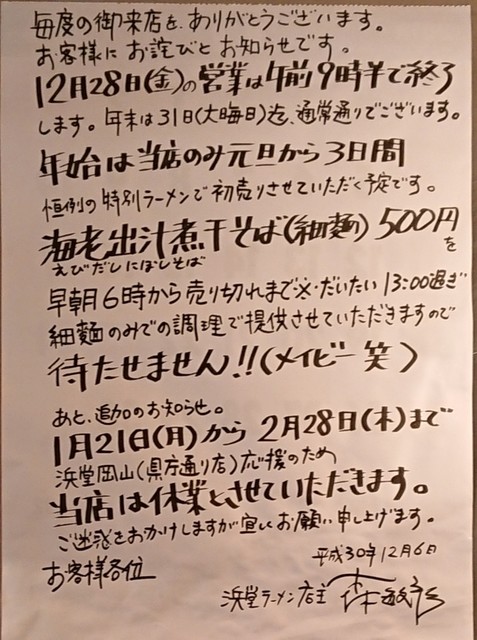 毎度の御来店を、ありがとうございます。
お客様にお詫びとお知らせです。
12月28日(金)の営業は午前9時半で終了
します。年末は31日(大晦日)迄、通常通りでございます。
年始は当店のみ元旦から3日間
恒例の特別ラーメンで初売りさせていただく予定です。
海老出汁煮干そば(細麺) 500円を
えびだしにぼしそば
早朝6時から売り切れまで※・だいたい13:00過ぎ
細麺のみでの調理で提供させていただきますので
待たせません!!(メイビー笑)
あと、追加のお知らせ。
1月21日(月)から2月28日(木)まで
浜堂岡山(県庁通り店)応援のため
当店は休業とさせていただきます。
ご迷惑をおかけしますが宜しくお願い申し上げます。
平成30年12月6日
お客様各位
浜堂ラーメン店主